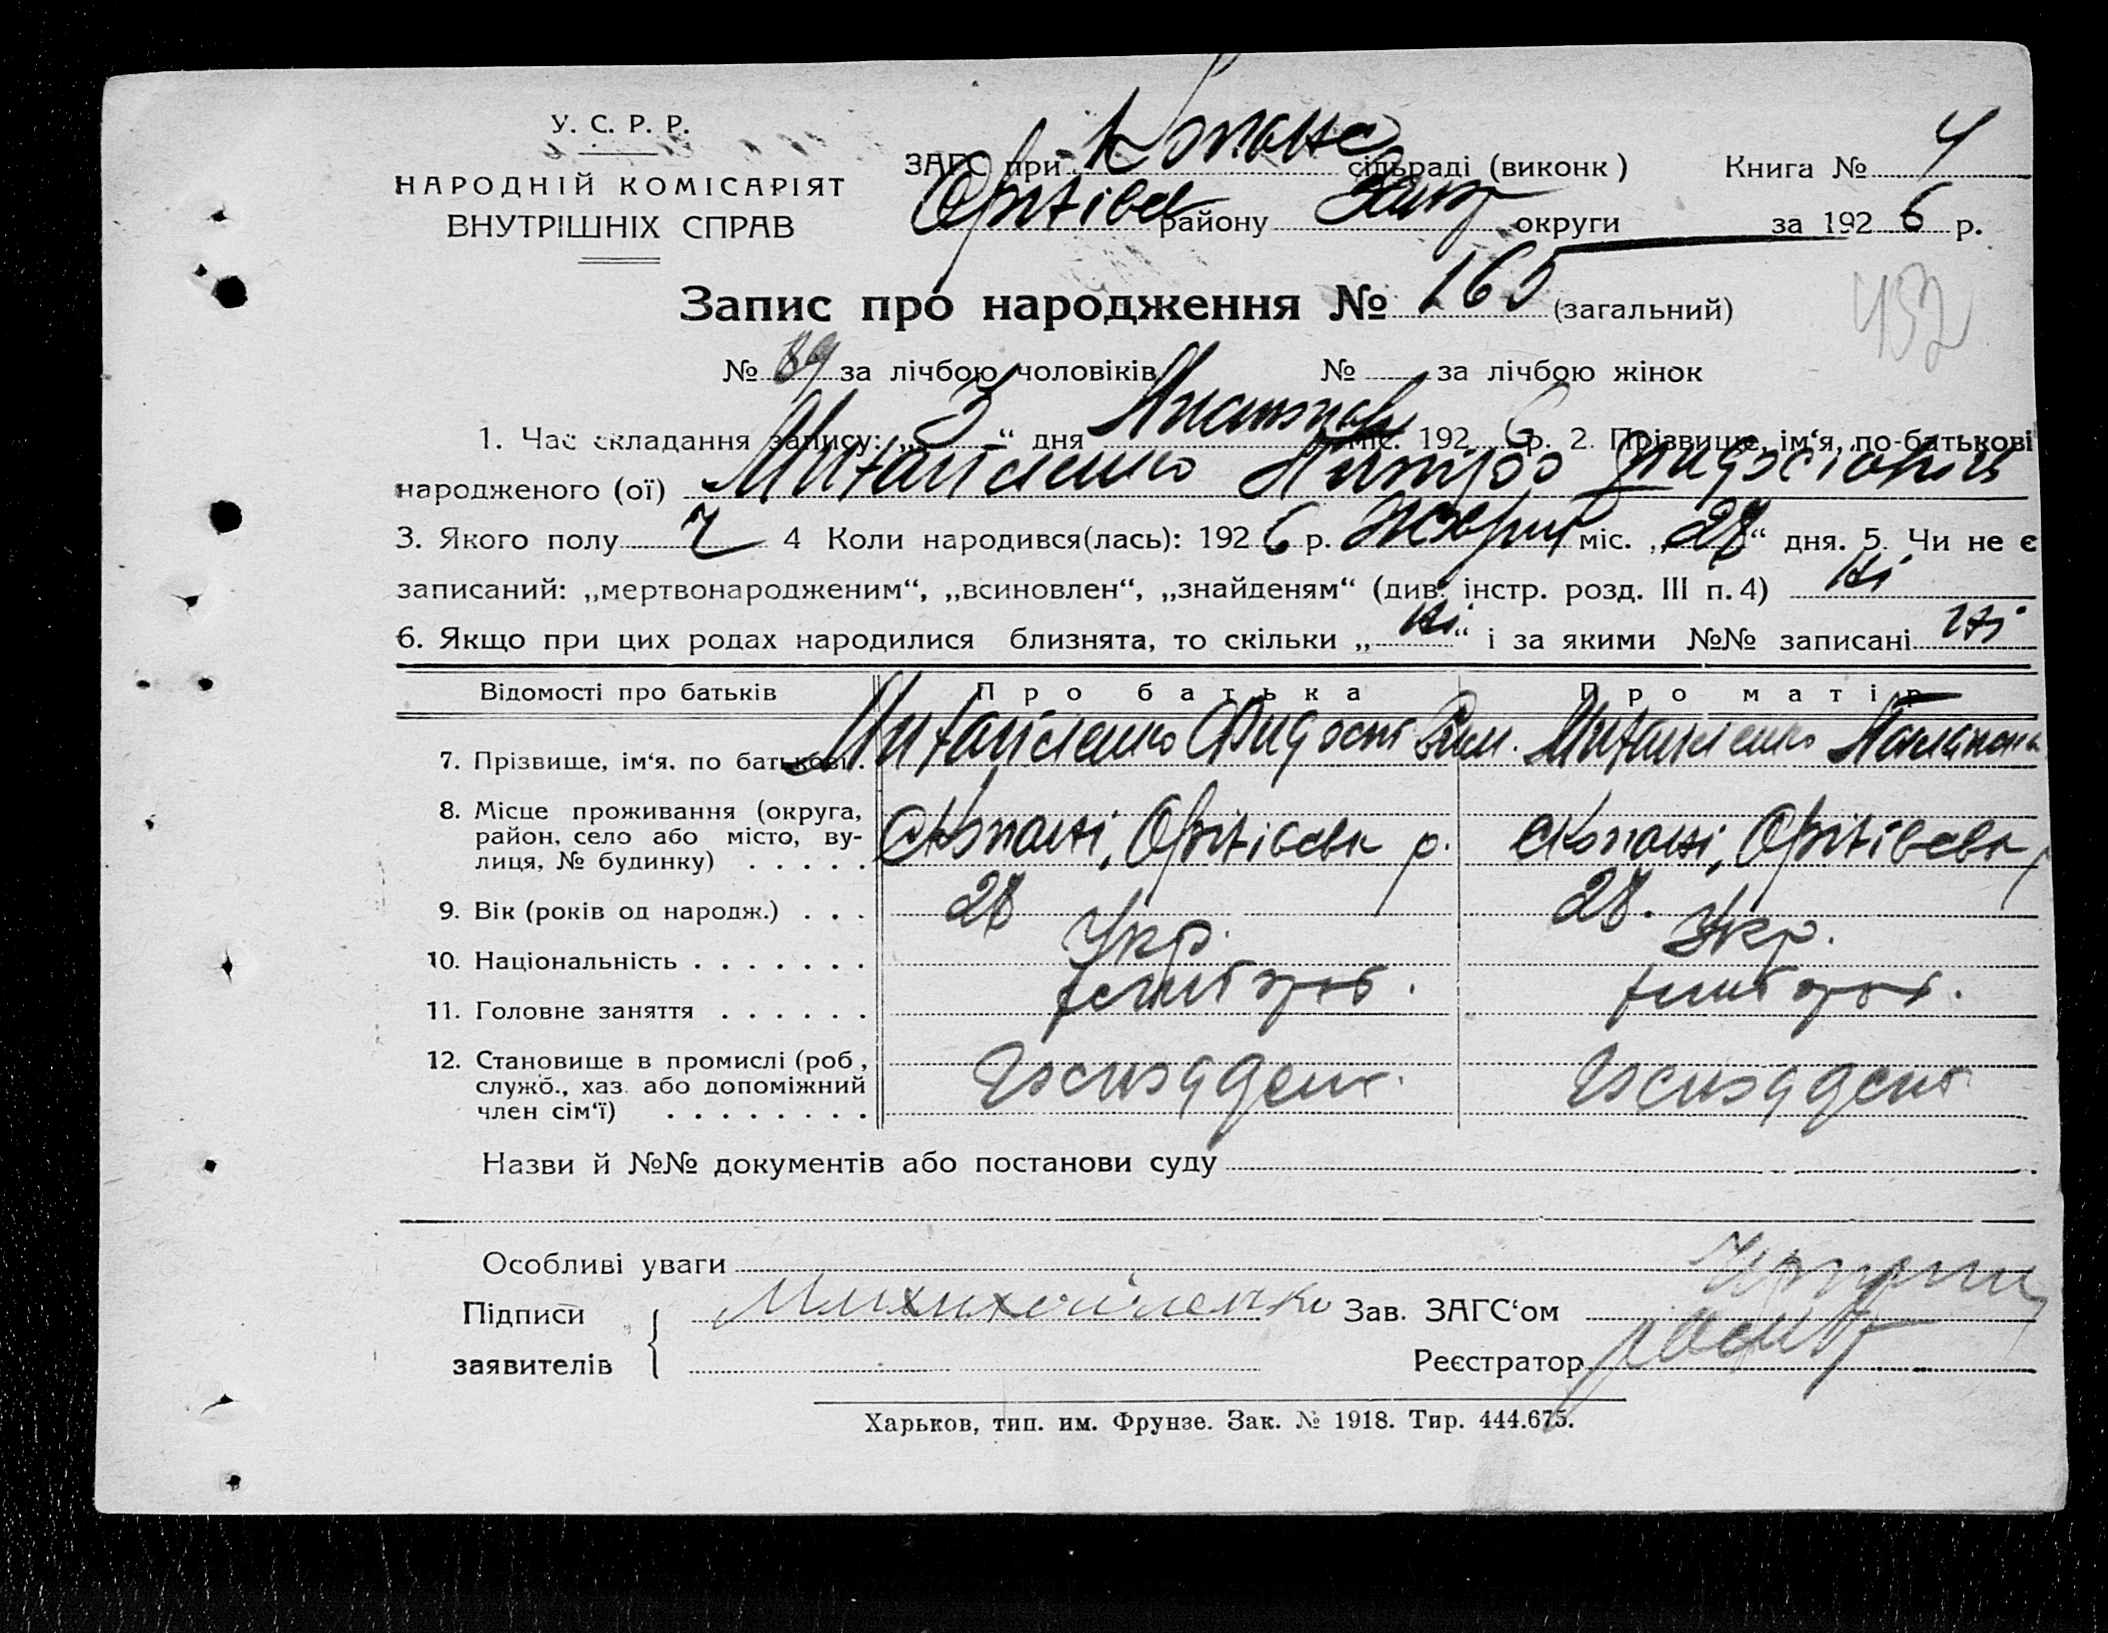 У. С. Р. Р.
НАРОДНІЙ КОМІСАРІЯТ
ВНУТРІШНІХ СПРАВ
ЗАГС при Копане сільраді (виконк ) Книга № 4
Оріхівск району Запор округи за 1926 р.
Запис про народження № 165 (загальний)
452
№ 89 за лічбою чоловіків № за лічбою жінок
1. Час складання запису: „3“ дня Листопад міс. 1926 р. 2. Прізвище, ім‘я, по-батькові
народженого (ої) Михайленко Дмитро
3. Якого полу ч 4 Коли народився(лась): 1926 р. Жовтн міс. „28“ дня. 5. Чи не є
записаний: „мертвонародженим“, „всиновлен“, „знайденям“ (див. інстр. розд. III п. 4) ні
6. Якщо при цих родах народилися близнята, то скільки „ні“ і за якими №№ записані ні
Відомості про батьків Про батька Про матір
7. Прізвище, ім‘я, по батькові . Михайленко Михайленко
8. Місце проживання (округа,
район, село або місто, ву-
лиця, № будинку) . . . . . с Копані, Оріхівськ р. с Копані, Оріхівськ р
9. Вік (років од народж.) . . . 28 28.
10. Національність . . . . . . . Укр. Укр.
11. Головне заняття . . . . . .
12. Становище в промислі (роб ,
служб., хаз. або допоміжний
член сім‘ї) . . . . . . . .
Назви й №№ документів або постанови суду
Особливі уваги
Підписи Зав. ЗАГС‘ом
заявителів Реєстратор
Харьков, тип. им. Фрунзе. Зак. № 1918. Тир. 444.675.